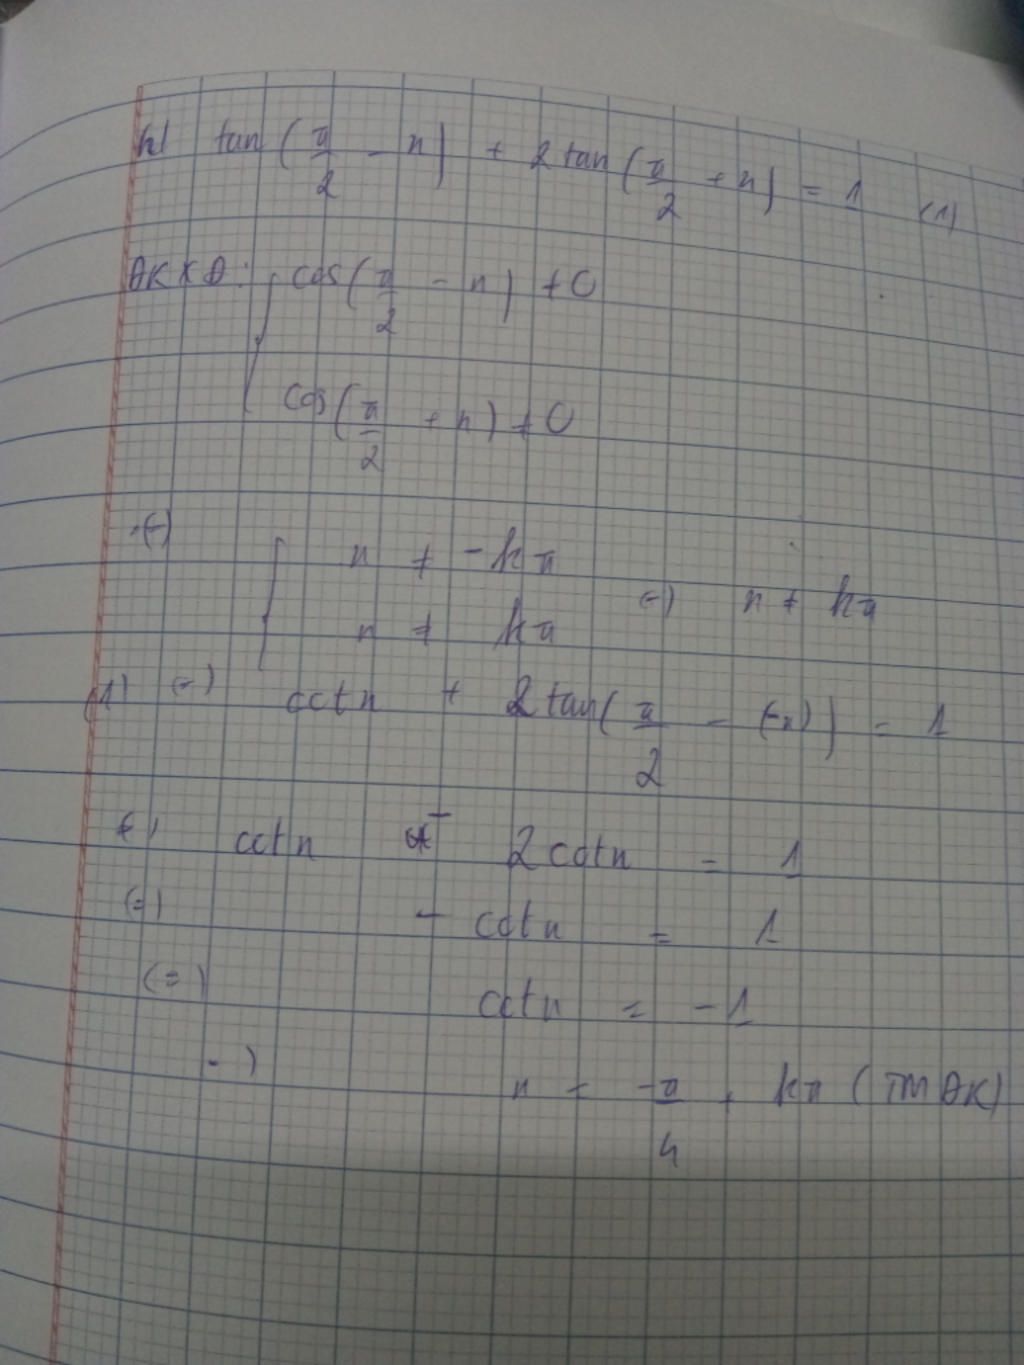 h) tan(π/2 - x) + 2tan(π/2 + x) = 1 (1)
ĐKXĐ: { cos(π/2 - x) ≠ 0
cos(π/2 + x) ≠ 0
(=) { x ≠ -kπ
x ≠ kπ (=) x ≠ kπ
(1) (=) cotx + 2tan(π/2 - (-x)) = 1
(=) cotx - 2cotx = 1
(=) - cotx = 1
(=) cotx = -1
(=) x = -π/4 + kπ (TMĐK)